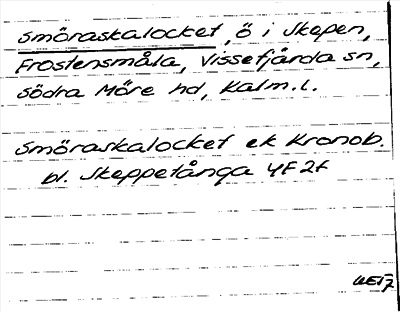 Smöraskalocket, ö i Skepen,
Frostensmåla, Vissefjärda sn,
Södra Möre hd, Kalm. l.
Smöraskalocket ek Kronob.
bl. Skeppetånga 4F 2f